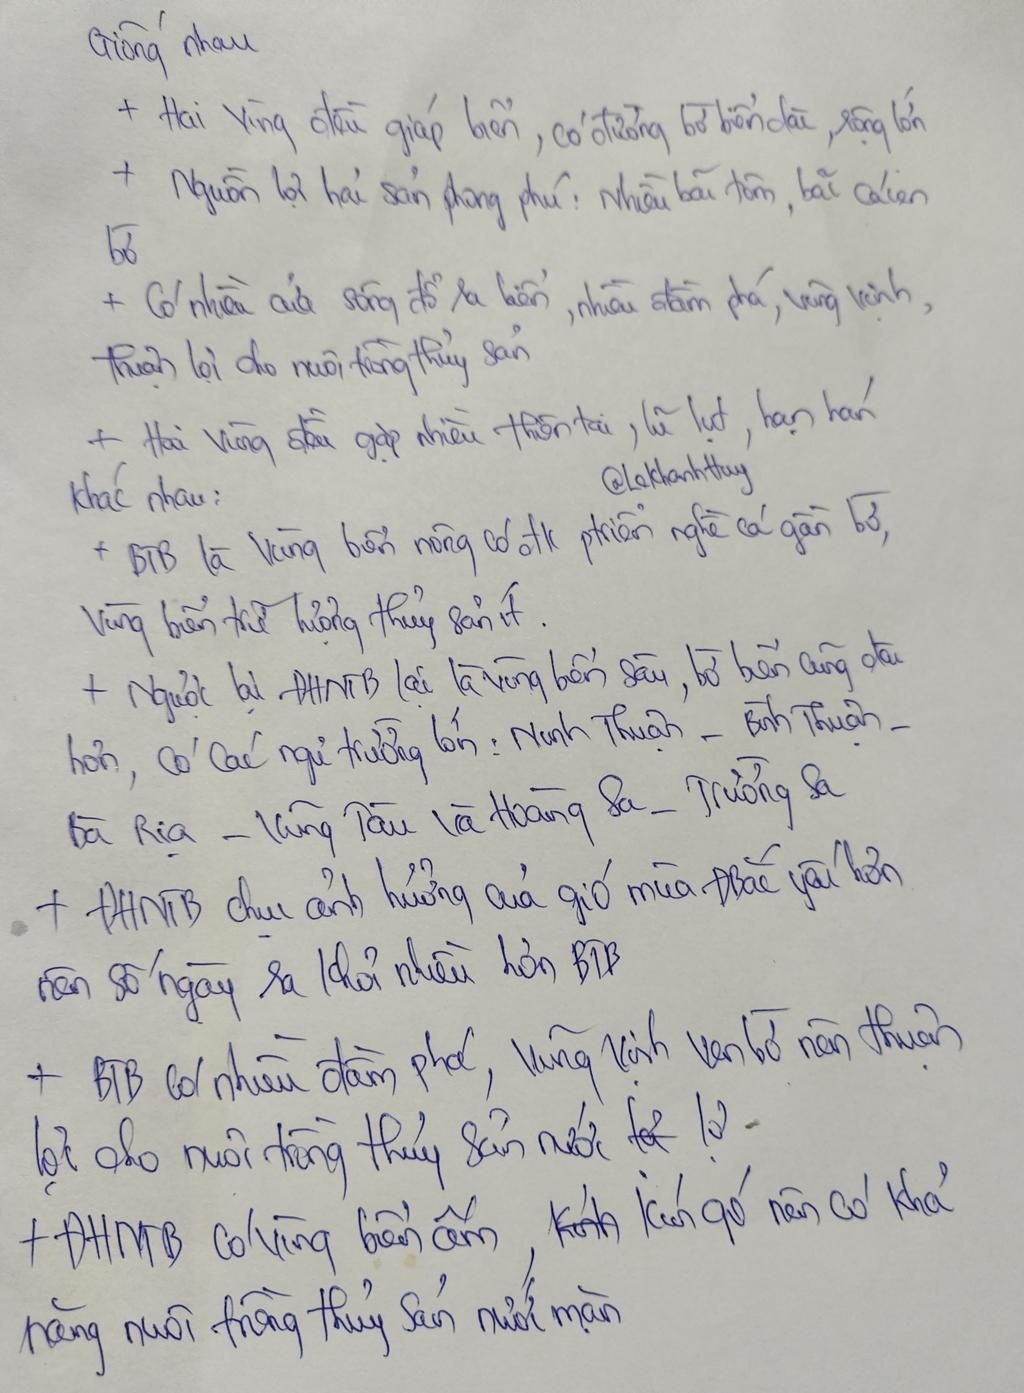 Giống nhau
+ Hai vùng đều giáp biển, có đường bờ biển dài, rộng lớn
+ Nguồn lợi hải sản phong phú: Nhiều bãi tôm, bãi cá ven
bờ
+ Có nhiều cửa sông đổ ra biển, nhiều đầm phá, vũng vịnh,
thuận lợi cho nuôi trồng thủy sản
+ Hai vùng đều gặp nhiều thiên tai, lũ lụt, hạn hán
@LeKhanhHuy
Khác nhau:
+ BTB là vùng biển nông có đk ptriển nghề cá gần bờ,
vùng biển trữ lượng thủy sản ít.
+ Ngược lại ĐHNTB lại là vùng biển sâu, bờ biển cũng dài
hơn, có các ngư trường lớn: Ninh Thuận - Bình Thuận -
Bà Rịa - Vũng Tàu và Hoàng Sa - Trường Sa
+ ĐHNTB chịu ảnh hưởng của gió mùa ĐBắc yếu hơn
nên số ngày ra khơi nhiều hơn BTB
+ BTB có nhiều đầm phá, vũng vịnh ven bờ nên thuận
lợi cho nuôi trồng thủy sản nước lợ
+ ĐHNTB có vùng biển ấm, kín gó nên có khả
năng nuôi trồng thủy sản nước mặn